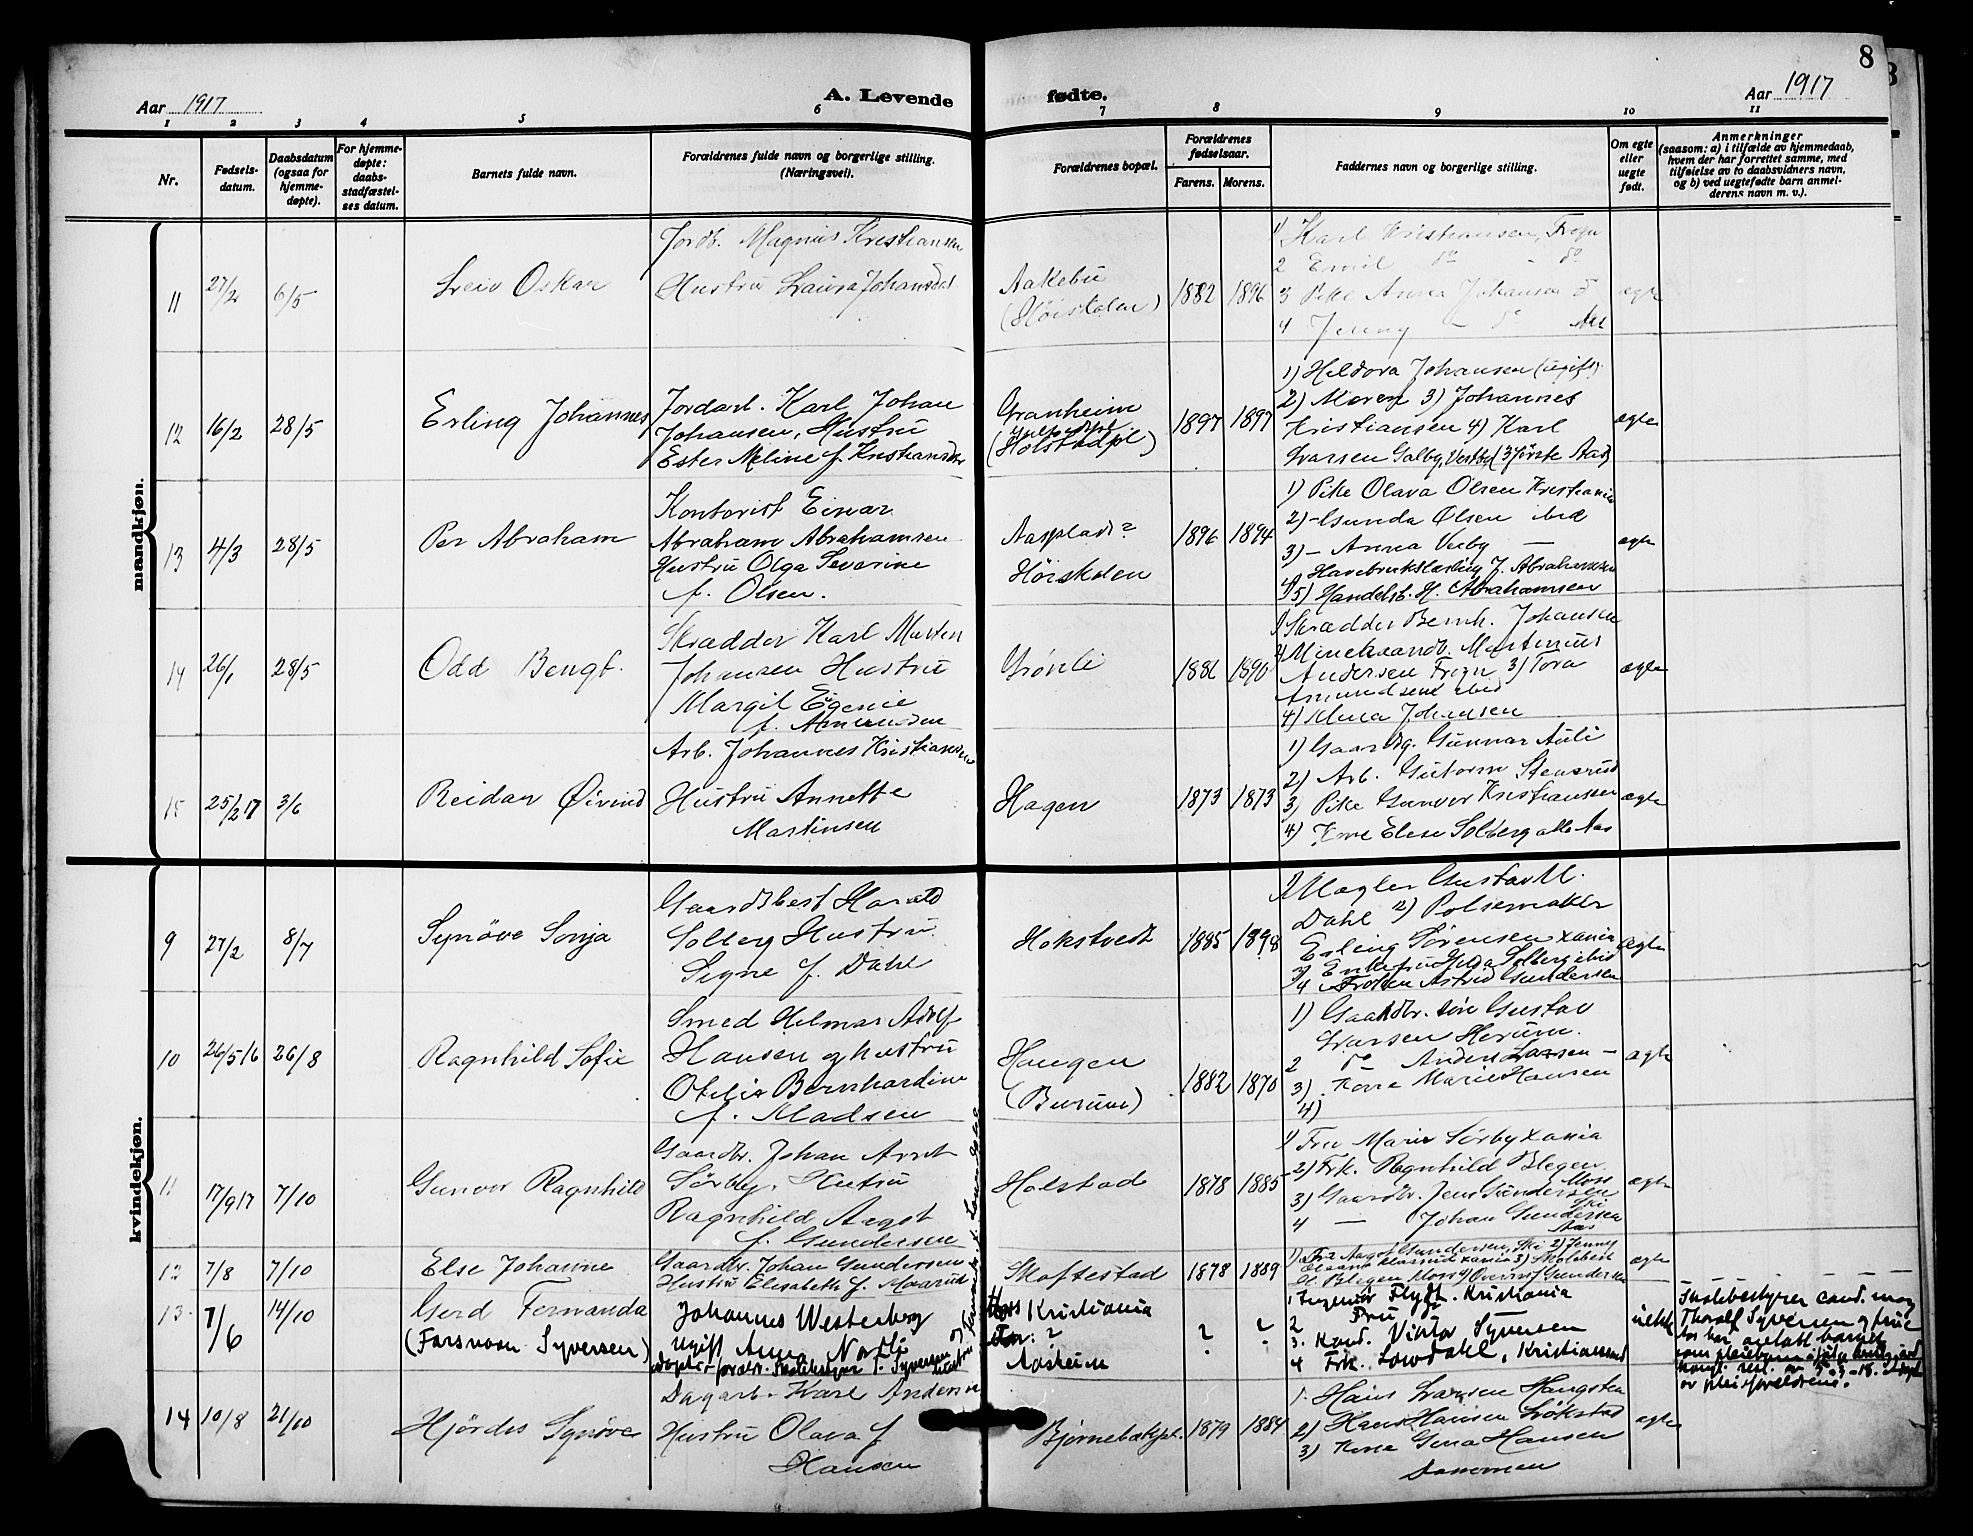 8
Aar 1917
A. Levende
fødte.
Aar 1917
1 2 3 4 5 6 7 8 9 10 11
Nr.
Fødsels-
datum.
Daabsdatum
(ogsaa for
hjemme-
døpte).
For hjemme-
døpte:
daabs-
stadfæstel-
ses datum.
Barnets fulde navn.
Forældrenes fulde navn og borgerlige stilling.
(Næringsvei).
Forældrenes bopæl.
Forældrenes
fødselsaar.
Farens. Morens.
Faddernes navn og borgerlige stilling.
Om egte
eller
uegte
født.
Anmerkninger
(saasom: a) i tilfælde av hjemmedaab,
hvem der har forrettet samme, med
tilføielse av to daabsvidners navn,
og b) ved uegtefødte barn anmel-
derens navn m. v.).
mandkjøn.
11 27/2 6/5 Leiv Oskar
Jordb. Magnus Kristiansen
Hustru Laura Johansdat.
Aakebu
(Høiskolen)
1882 1896
1 Karl Kristiansen, Frogn
2 Emil do - do
3 Pike Anna Johansen do
4 Jenny - do Aas
egte
12 16/2 28/5 Erling Johannes
Jordarb. Karl Johan
Johansen, Hustru
Ester Meline f. Kristiansen
Granheim
(Holstadpl)
1897 1897
1) Heldora Johansen (ugift)
2) Moren 3) Johannes
Kristiansen 4) Karl
Larsen Galby, Vestby (3 første Aas)
egte
13 4/3 28/5 Per Abraham
Kontorist Einar
Abraham Abrahamsen
Hustru Olga Severine
f. Olsen.
Aasplads?
Høiskolen
1896 1894
1) Pike Olava Olsen Kristiania
2) - Gunda Olsen ibid
3) - Anna Veiby -
4) Havebrukslærling J. Abrahamsen
5) Handelsb. H. Abrahamsen
egte
14 26/1 28/5 Odd Bengt.
Skrædder Karl Morten
Johansen Hustru
Margit Eugenie
f. Amundsen
Grönli
1886 1890
1 Skrædder Bernh. Johansen
2 Minehaandv. Martinius
Andersen Frogn 3) Tora
Amundsen ibid
4) Alma Johansen
egte
15 25/2 17 3/6 Reidar Øivind
Arb. Johannes Kristiansen
Hustru Annette
Martinsen
Hagen
1873 1873
1) Gaardbr. Gunnar Auli
2) Arb. Gutorm Stensrud
3) Pike Gunvor Kristiansen
4) Kone Elise Solberg alle Aas
egte
kvindekjøn.
9 27/2 8/7 Synöve Sonja
Gaardsbest Harald
Solberg Hustru
Signe f. Dahl
Hokstvedt
1885 1898
1) Mægler Gustav M.
Dahl 2) Pölsemaker
Erling Sørensen Xania
3) Enkefru Helga Solberg ibid
4 Frøken Astrid Gundersen
egte
10 26/5 16 26/8 Ragnhild Sofie
Smed Helmar Adolf
Hansen og hustru
Otelie Bernhardine
f. Madsen
Haugen
(Burum)
1882 1870
1) Gaardbr. søn Gustav
Larsen Herum.
2 do Anders Larsen -
3) Kone Marie Hansen
4)
egte
11 17/9 17 7/10 Gunvor Ragnhild
Gaardbr. Johan Arnt
Sörby. Hustru
Ragnhild Aagot
f. Gundersen
Holstad
1878 1885
1) Fru Marie Sørby Xania
2) Frk. Ragnhild Blegen Moss
3) Gaardbr. Jens Gundersen Ski
4 - Johan Gundersen Aas
egte
12 7/8 7/10 Else Johanne
Gaardbr. Johan Gundersen
Hustru Elisabeth f. Maarud
Skoftestad
1878 1889
1) Fru Aagot Gundersen, Ski 2) Jenny
Xania 3) Skolebest
H. Blegen Moss 4) Gundersen
egte
13 7/6 14/10 Gerd Fernanda
(Farsnavn Syversen)
Johannes Westerberg
ugift Anna Nordli
adoptiv-foreldr. T. Syversen og hustru
Kristiania
?
Aasheim
? ?
1. Ingeniør Flydt. Kristiania
2 Fru
3. Kand. Viktor Syversen
4 Frk. Lowdahl, Kristiansund
uekte
Skolebestyrer cand. mag
Thoralf Syversen og frue
har barnet
14 10/8 21/10 Hjördis Synöve
Dagarb. Karl Andersen
Hustru Olava f
Hansen
Bjørnebækpl.
1879 1884
1. Hans Larsen Haugsten
2) Hans Hansen Løkstad
3) Kone Gina Hansen
Sammen
egte